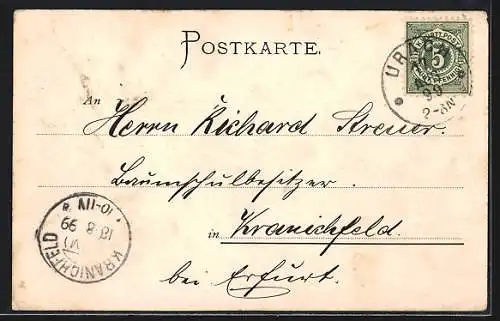 POSTKARTE.
URACH
99
5
An
Herrn Richard Streuer.
Baumschulbesitzer
in Kranichfeld.
bei Erfurt.
KRANICHFELD
13 8 99
10-11V